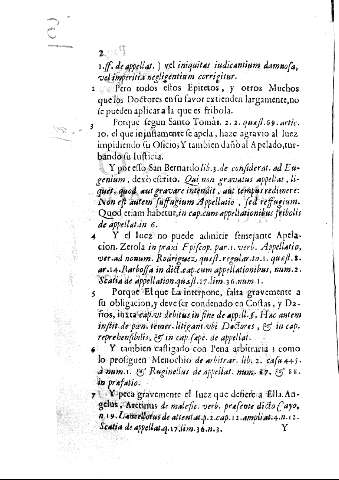 2
1. ff. de appellat. ) vel iniquitas iudicantium damnosa,
vel imperitia negligentium corrigitur.
2 Pero todos estos Epitetos, y otros Muchos
que los Doctores en su favor extienden largamente, no
se pueden aplicar a la que es fribola.
3 Porque segun Santo Tomás. 2. 2. quæst. 69. artic.
10. el que injustamente se apela, hace agravio al Iuez
impidiendo su Oficio; Y tambien daño al Apelado, tur-
bando su Iusticia.
Y por esso San Bernardo lib. 3. de considerat. ad Eu-
genium, dexò escrito. Qui non gravatus appellat, li-
quet, quod aut gravare intendit, aut tempus redimere:
Non est autem suffugium Appellatio, sed reffugium.
Quod etiam habetur, in cap. cum appellationibus fribolis
de appellat. in 6.
4 Y el Iuez no puede admitir semejante Apela-
cion. Zerola in praxi Episcop. par. 1. verb. Appellatio,
ver. ad nonum. Rodriguez, quæst. regular. to. 1. quæst. 8.
ar. 14. Barbossa in dict. cap. cum appellationibus, num. 2.
Scatia de appellation. quæst. 17. lim. 36. num. 1.
5 Porque El que La interpone, falta gravemente a
su obligacion, y deve ser condenado en Costas, y Da-
ños, iuxta cap. vt debitus in fine de appell. §. Hac autem
instit. de pœn. temer. litigant. vbi Doctores, & in cap.
reprehensibilis, & in cap. sæpe. de appellat.
6 Y tambien castigado con Pena arbitraria; como
lo prosiguen Menochio de arbitrar. lib. 2. casu 445.
à num. 1. & Ruginellus de appellat. num. 87. & 88.
in præfatio.
7 Y peca gravemente el Iuez que defiere a Ella. An-
gelus, Aretinus de malefic. verb. præsente dicto Cayo,
n. 19. Lancellotus de attentat. p. 2. cap. 12. ampliat. 4. n. 12.
Scatia de appellat. q. 17. lim. 36. n. 3.
Y